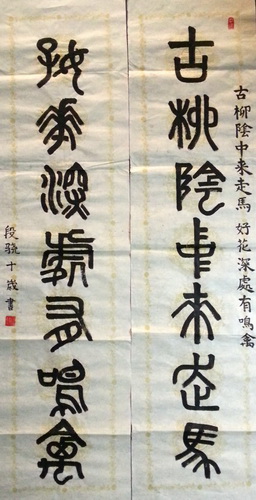 古柳陰中来走馬 好花深處有鳴禽
古柳陰中来走馬
好花深處有鳴禽
段骁十歲書